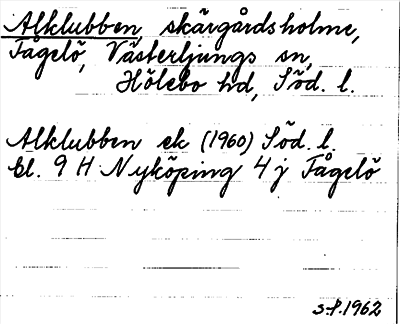 Alklubben skärgårdsholme,
Fågelö, Västerljungs sn,
Hölebo hd, Söd. l.
Alklubben ek (1960) Söd. l.
bl. 9 H Nyköping 4 j Fågelö
S.P. 1962